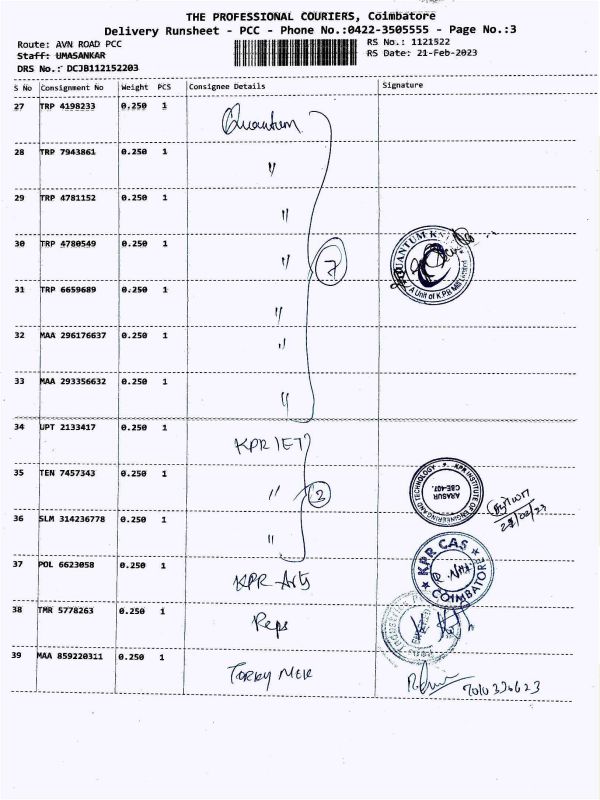 THE PROFESSIONAL COURIERS, Coimbatore
Delivery Runsheet - PCC - Phone No.:0422-3505555 - Page No.:3
Route: AVN ROAD PCC
RS No.: 1121522
Staff: UMASANKAR
RS Date: 21-Feb-2023
DRS No.: DCJB112152203
S No Consignment No Weight PCS Consignee Details Signature
27 TRP 4198233 0.250 1 Quantum
28 TRP 7943861 0.250 1 "
29 TRP 4781152 0.250 1 "
30 TRP 4780549 0.250 1 " 7
QUANTUM
A Unit of KPR Mill Limited
31 TRP 6659689 0.250 1 "
32 MAA 296176637 0.250 1 "
33 MAA 293356632 0.250 1 "
34 UPT 2133417 0.250 1 KPR IET
35 TEN 7457343 0.250 1 " 3
KPR INSTITUTE OF ENGINEERING AND TECHNOLOGY
ARASUR
CBE-407.
36 SLM 314236778 0.250 1 "
37 POL 6623058 0.250 1 KPR Arts
KPR CAS
COIMBATORE
38 TMR 5778263 0.250 1 Reps
39 MAA 859220311 0.250 1